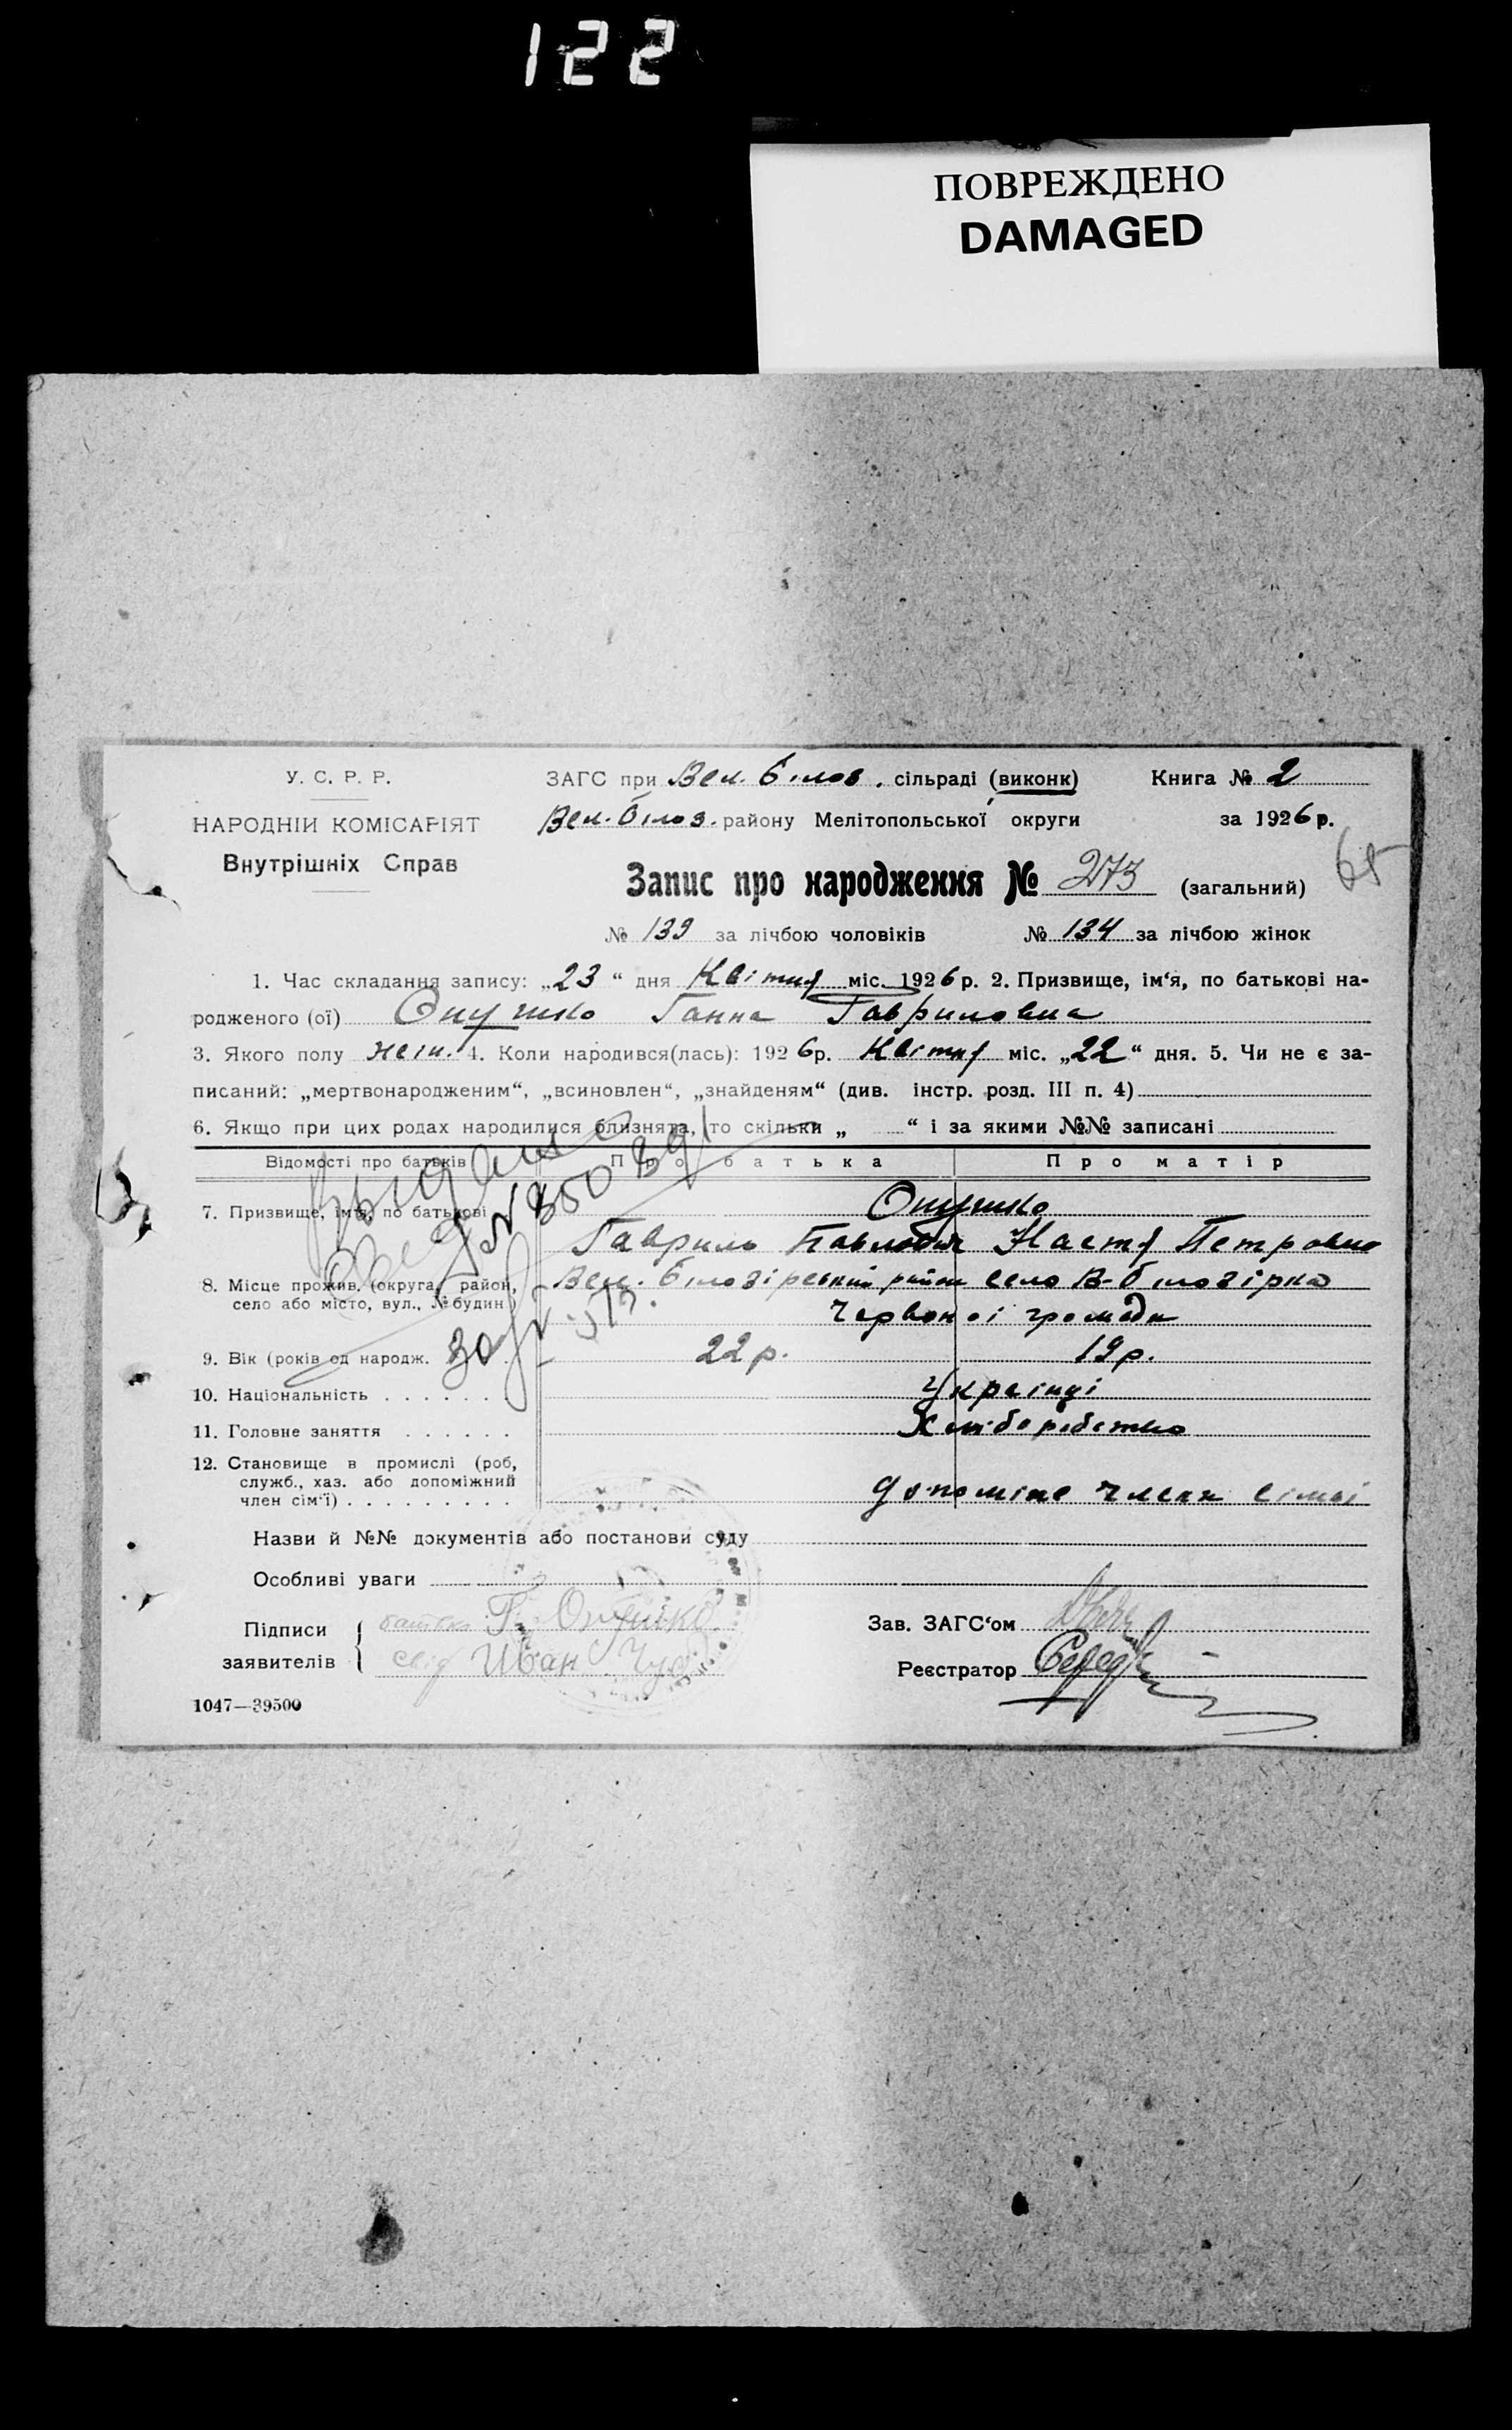 122
ПОВРЕЖДЕНО
DAMAGED
У. С. Р. Р.
НАРОДНІЙ КОМІСАРІЯТ
Внутрішніх Справ
ЗАГС при Вел. Білоз. сільраді (виконк) Книга № 2
Вел. Білоз. району Мелітопольської округи за 1926 р.
65
Запис про народження № 273 (загальний)
№ 139 за лічбою чоловіків № 134 за лічбою жінок
1. Час складання запису: „23“ дня Квітня міс. 1926 р. 2. Призвище, ім‘я, по батькові на-
родженого (ої) Опушко Ганна Гавриловна
3. Якого полу жін. 4. Коли народився(лась): 1926р. Квітня міс. „22“ дня. 5. Чи не є за-
писаний: „мертвонародженим“, „всиновлен“, „знайденям“ (див. інстр. розд. III п. 4)
6. Якщо при цих родах народилися близнята, то скільки „ “ і за якими №№ записані
Відомості про батьків Про батька Про матір
7. Призвище, ім‘я, по батькові Опушко
Гаврило Павлович Настя Петровна
8. Місце прожив. (округа, район, село або місто, вул., № будин.) Вел. Білозірський район село В-Білозірка
Червоної громади
9. Вік (років од народж. 22 р. 19 р.
10. Національність . . . . . . . Українці
11. Головне заняття . . . . . . Хліборобство
12. Становище в промислі (роб,
служб., хаз. або допоміжний
член сім‘ї) . . . . . . . . . член сімьі
Назви й №№ документів або постанови суду
Особливі уваги
Підписи заявителів батько Г. Опушко
свід Иван
Зав. ЗАГС‘ом
Реєстратор
1047—39500